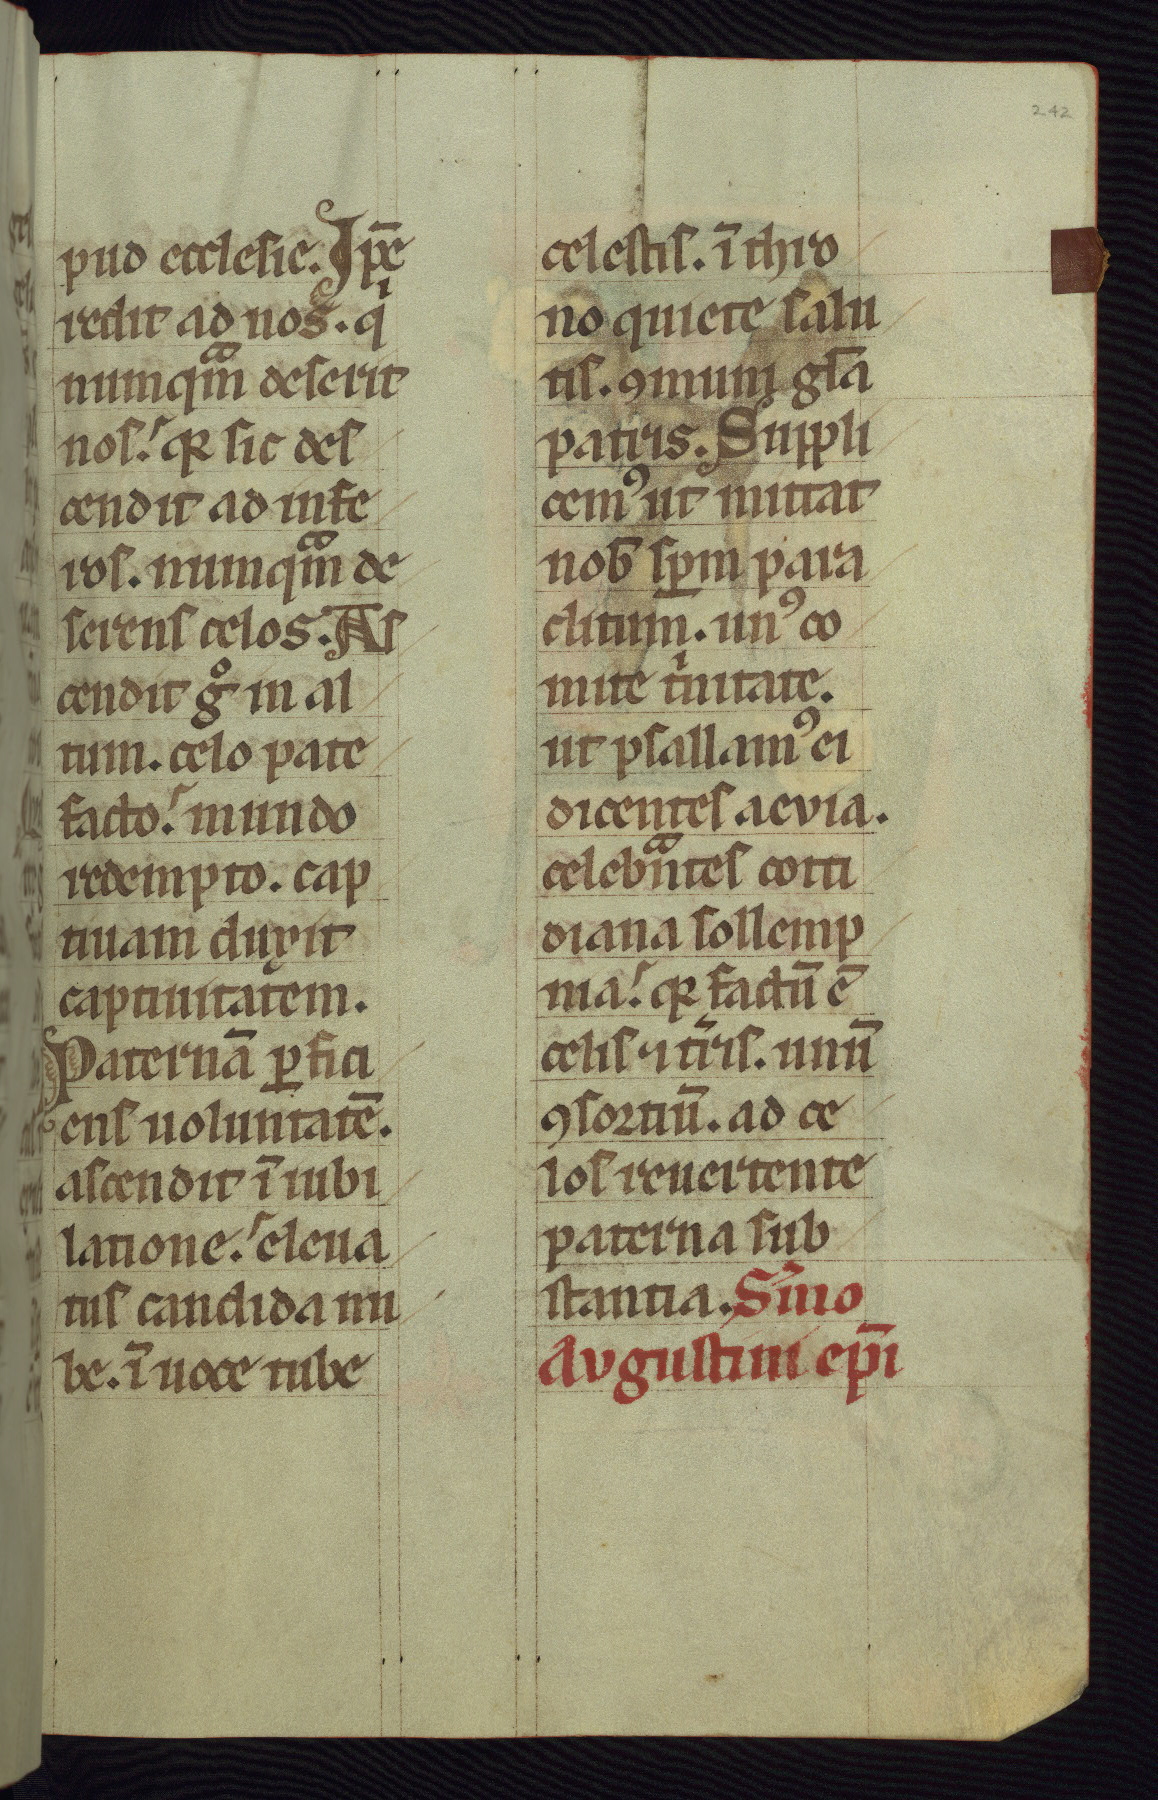 242
pud ecclesie. Ip̄e
redit ad nos. qⁱ
numqᵃm deserit
nos. qꝛ sic des
cendit ad infe
ros. numqᵃm de
serens celos. As
cendit gͦ in al
tum. celo pate
facto. mundo
redempto. cap
tiuam duxit
captiuitatem.
Paternā ꝑfici
ens uoluntatē.
ascendit ī iubi
latione. eleua
tus candida nu
be. ī uoce tube
celestis. ī thro
no quiete salu
tis. ꝯmunī gl̄a
patris. Suppli
cemꝰ ut mittat
nob̄ sp̄m para
clitum. unꝰ co
mite tⁱnitate.
ut psallamꝰ ei
dicentes aevia.
celebᵃntes cotti
diana sollemp
nia. qꝛ factū ē
celis ⁊ t̄ris. unū
ꝯsortiū. ad ce
los reuertente
paterna sub
stantia. Sm̄o
Avgustini ep̄i